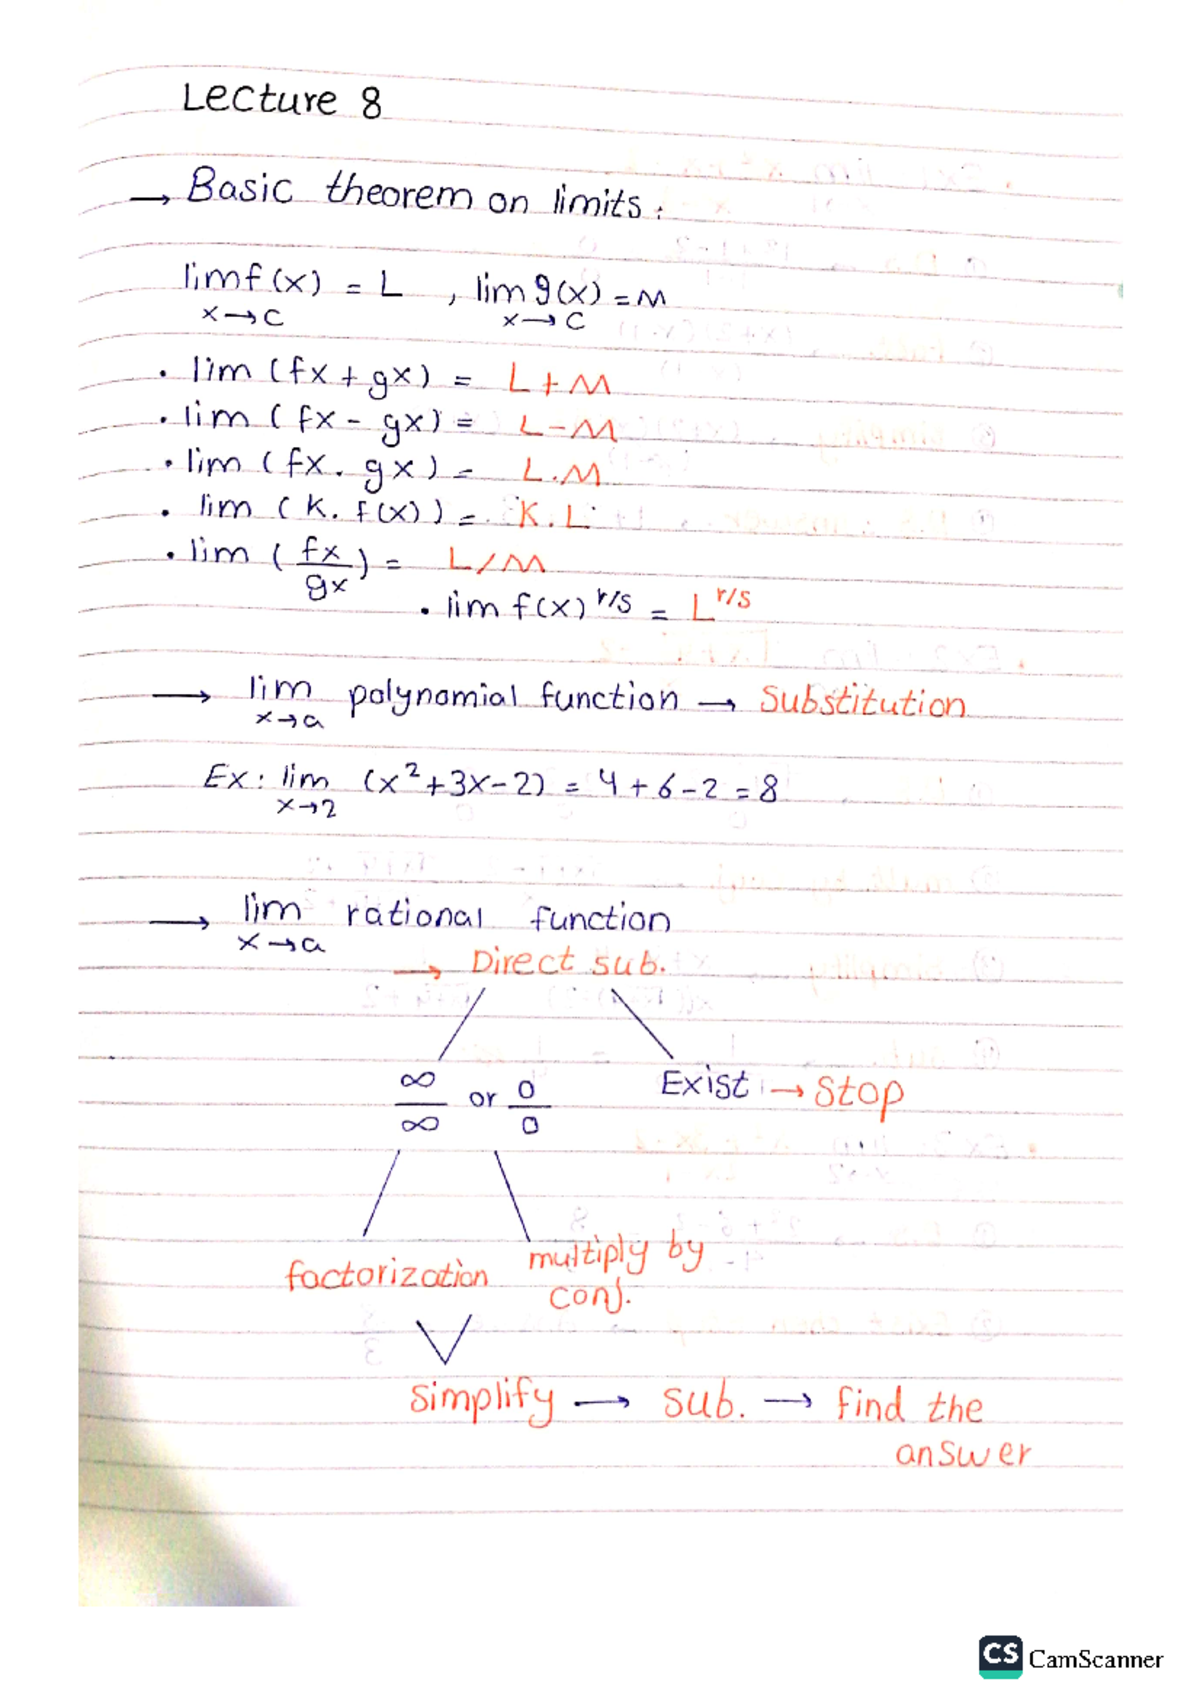 Lecture 8
→ Basic theorem on limits:
lim f(x) = L , lim g(x) = M
x→c x→c
• lim (fx + gx) = L+M
• lim (fx - gx) = L-M
• lim (fx . gx) = L.M
• lim (K. f(x)) = K.L
• lim (fx/gx) = L/M
• lim f(x)^r/s = L^r/s
→ lim polynomial function → Substitution
x→a
Ex: lim (x²+3x-2) = 4+6-2 = 8
x→2
→ lim rational function
x→a
→ Direct sub.
∞/∞ or 0/0 Exist → Stop
factorization multiply by
conj.
Simplify → sub. → find the
answer
CS CamScanner